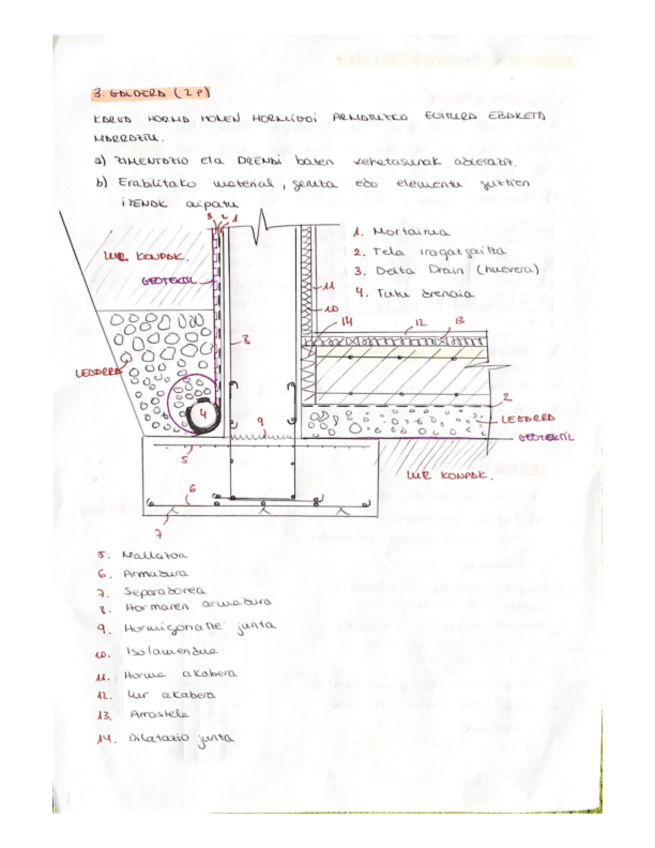 3. GALDERA (2 P)
KARGA HORMA HONEN HORMIGOI ARMATUKO EGITURA EBAKETA
MARRAZTU.
a) ZIMENTAZIO eta DRENAI baten xehetasunak adierazi.
b) Erabilitako material, geruza edo elementu guztien
IZENAK aipatu
3 2 1
LUR KONPAK.
GEOTEXTIL
1. Mortairua
2. Tela iragazgaitza
3. Delta Drain (huevera)
4. Tutu drenaia
11
10
14
12
13
8
LEGARRA
4
9
2
LEGARRA
GEOTEXTIL
5
LUR KONPAK.
6
7
5. Mallazoa
6. Armadura
7. Separadorea
8. Hormaren armadura
9. Hormigonatze junta
10. Isolamendua
11. Horma akabera
12. Lur akabera
13. Arrastela
14. Dilatazio junta